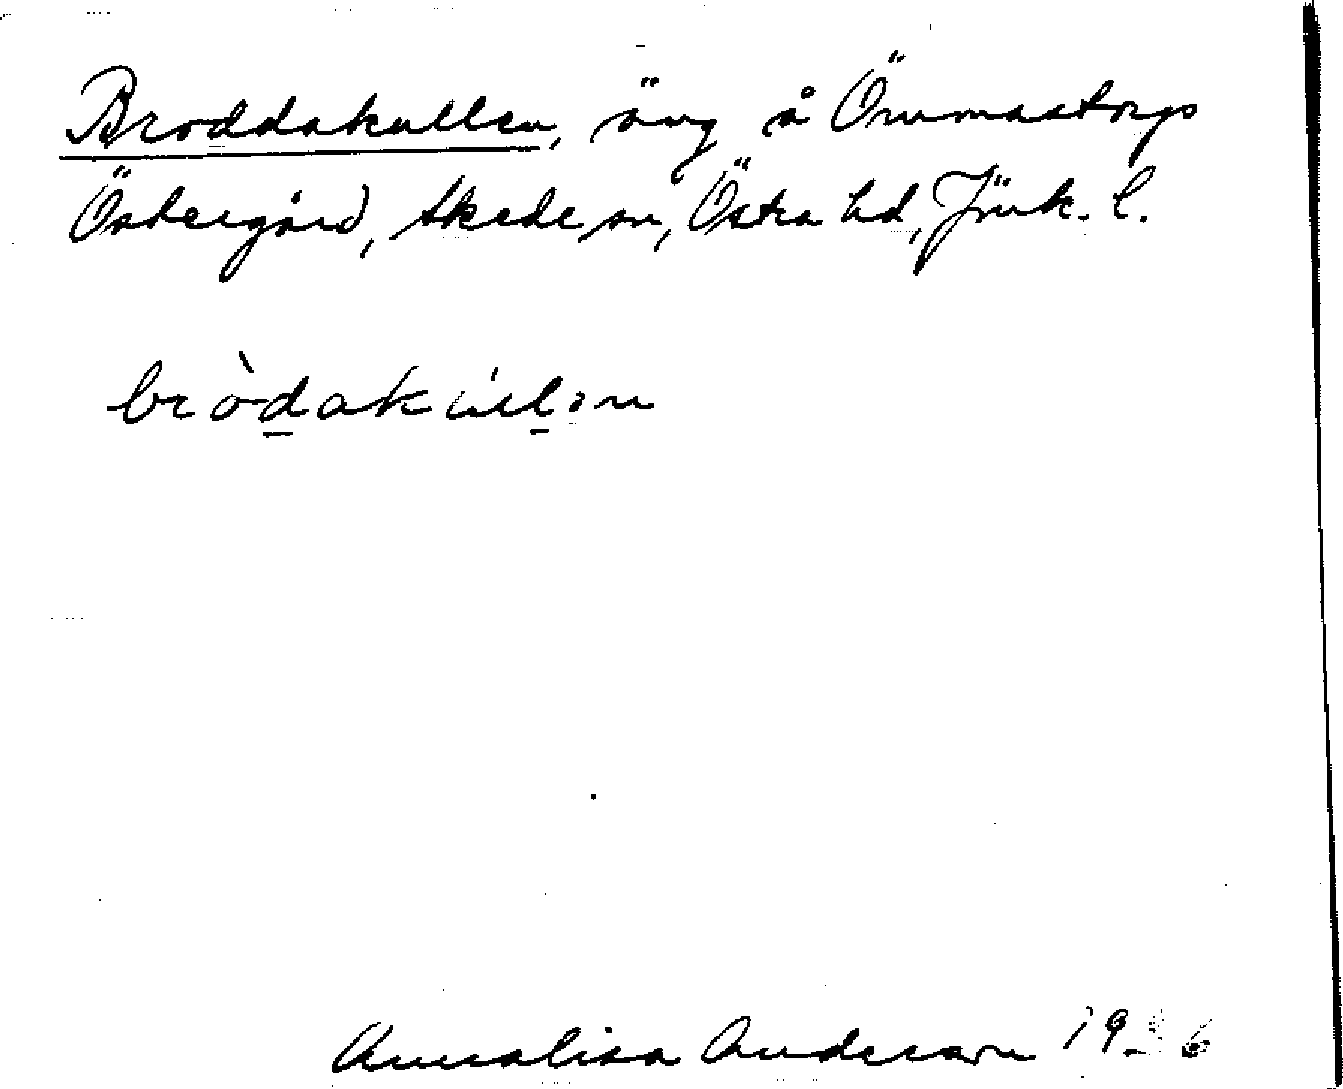 Broddakullen, äng å Örumastorps
Östergård, Skede sn, Östra hd, Jönk. l.
bròdakúlǝn
Annalisa Anderson